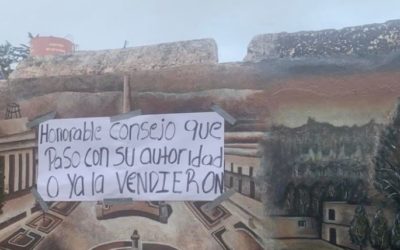 Honorable Consejo que
Paso con su autoridad
O Ya la VENDIERON